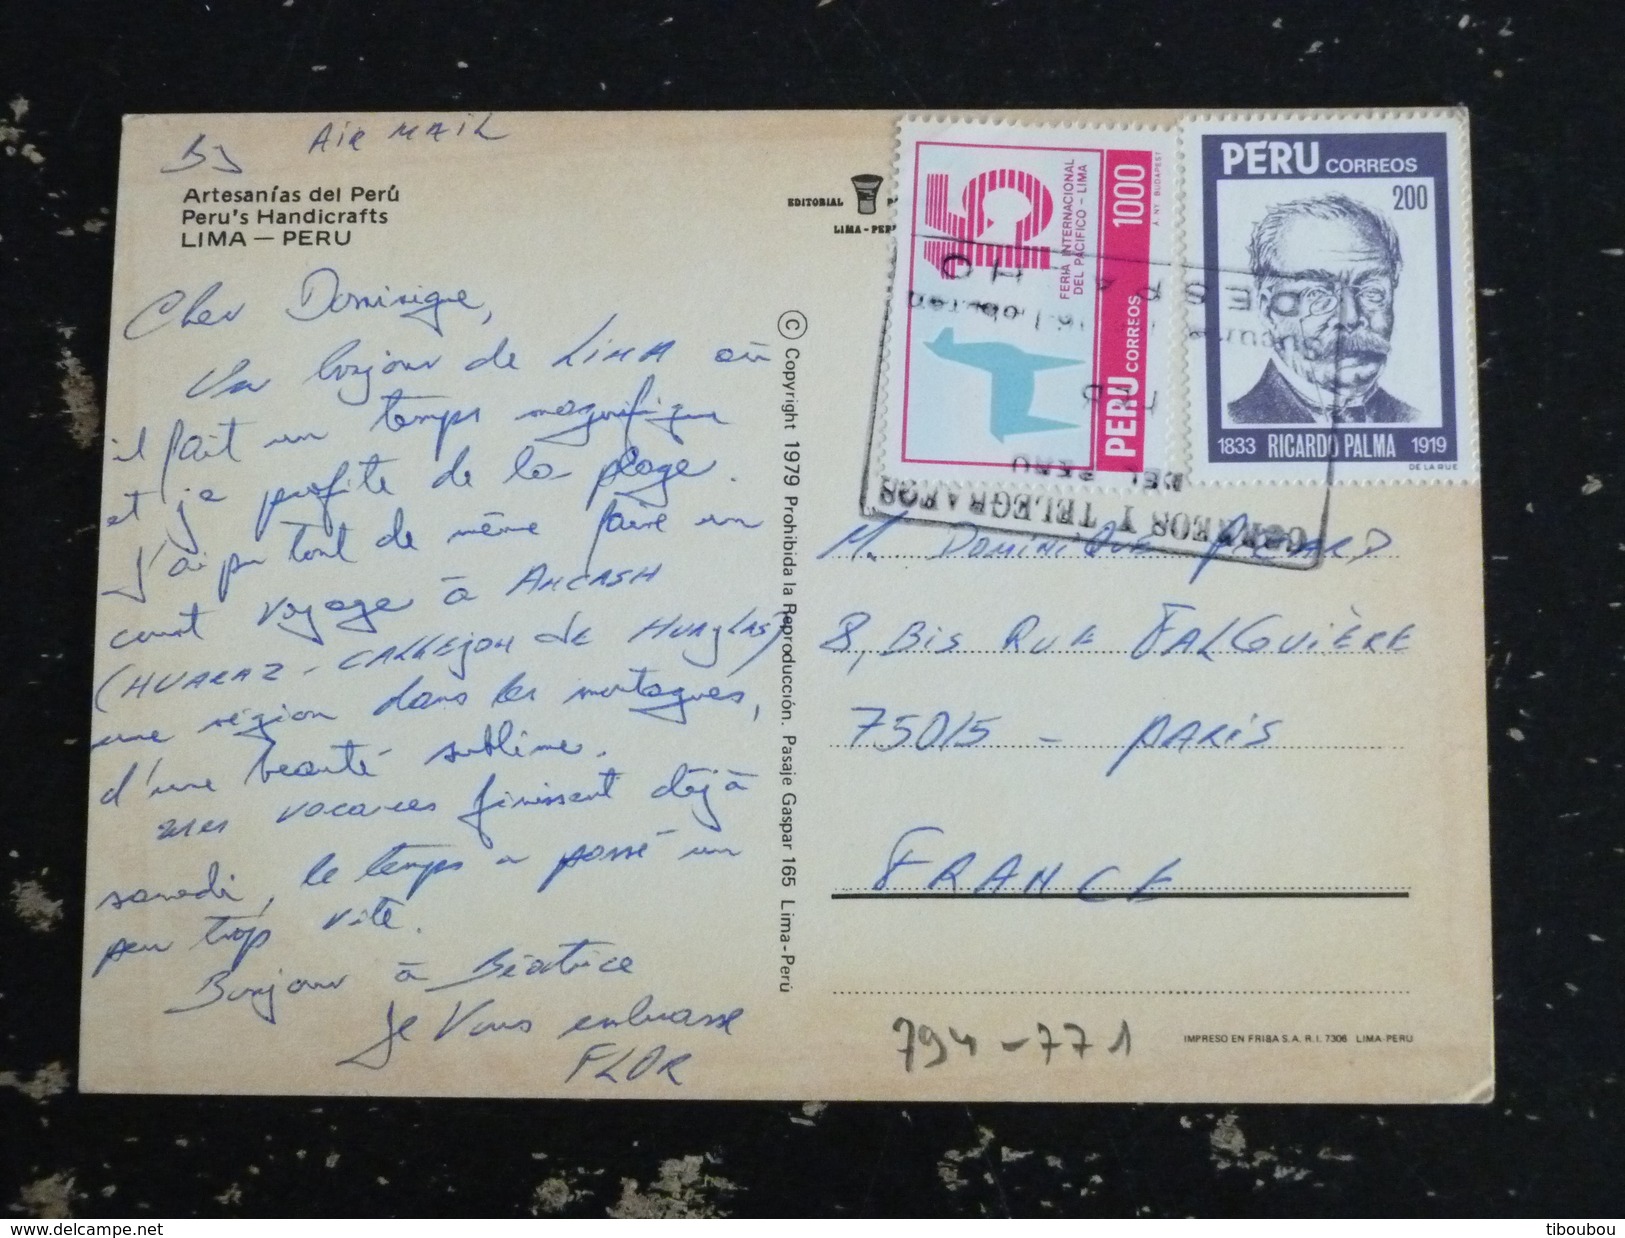 By AIR MAIL
Artesanías del Perú
Peru's Handicrafts
LIMA — PERU
Cher Dominique,
Un bonjour de LIMA où
il fait un temps magnifique
et je profite de la plage.
J'ai pu tout de même faire un
court voyage à ANCASH
(HUARAZ - CALLEJON de HUAYLAS)
une région dans les montagnes,
d'une beauté sublime.
mes vacances finissent déjà
samedi, le temps a passé un
peu trop vite.
Bonjour à Béatrice
Je vous embrasse
FLOR
© Copyright 1979 Prohibida la Reproducción. Pasaje Gaspar 165 Lima-Perú
EDITORIAL
LIMA-PER
15
FERIA INTERNACIONAL
DEL PACIFICO - LIMA
PERU CORREOS 1000
A. NY. BUDAPEST
PERU CORREOS
200
1833 RICARDO PALMA 1919
DE LA RUE
CORREOS Y TELEGRAFOS
DEL PERU
M. DOMINIQUE
8, Bis RUE FALGUIÈRE
75015 - PARIS
FRANCE
794-771
IMPRESO EN FRIBA S.A. R.I. 7306 LIMA-PERU
tiboubou
www.delcampe.net